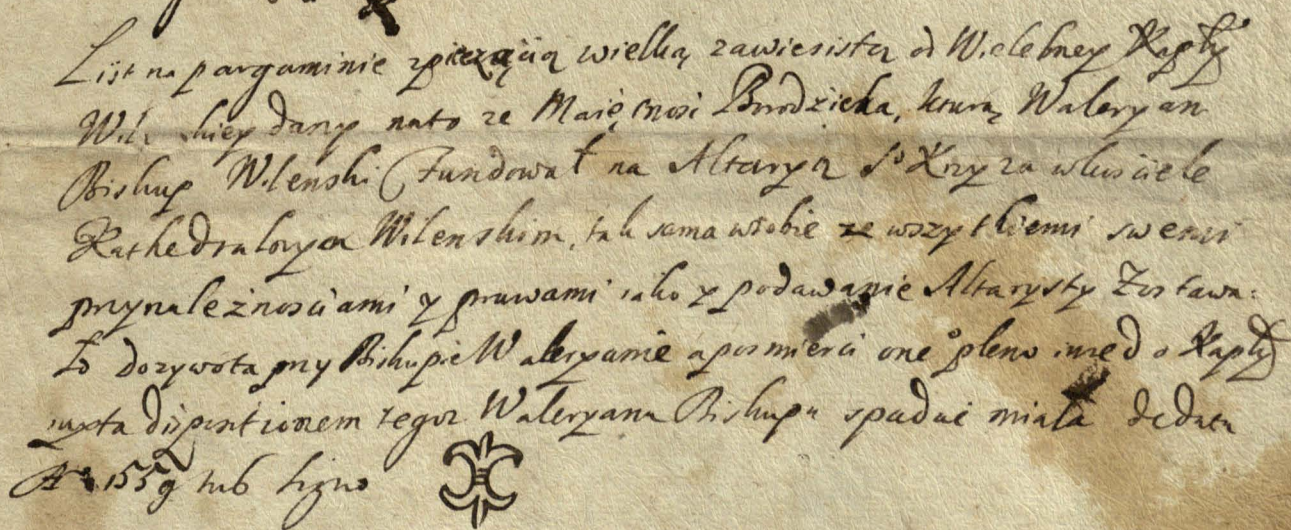 List na pargaminie z pieczęcią wielką zawiesistą od Wielebney Kaptły
Wileńskiey dany na to ze Maiętnosć Brodzicka, kturą Waleryan
Biskup Wilenski Fundował na Altaryą So Krzyza w kościele
Kathedralnym Wilenskim, tak sama w sobie ze wszytkiemi swemi
przynależnosciami y prawami iako y podawanie Altarysty Zostawa:
ło dozywota przy Biskupie Waleryanie a po smierci oneo pleno iure do Kaptły
iuxta dispositionem tegoz Waleryana Biskupa spadać miała de data
Ao 1559 sub signo